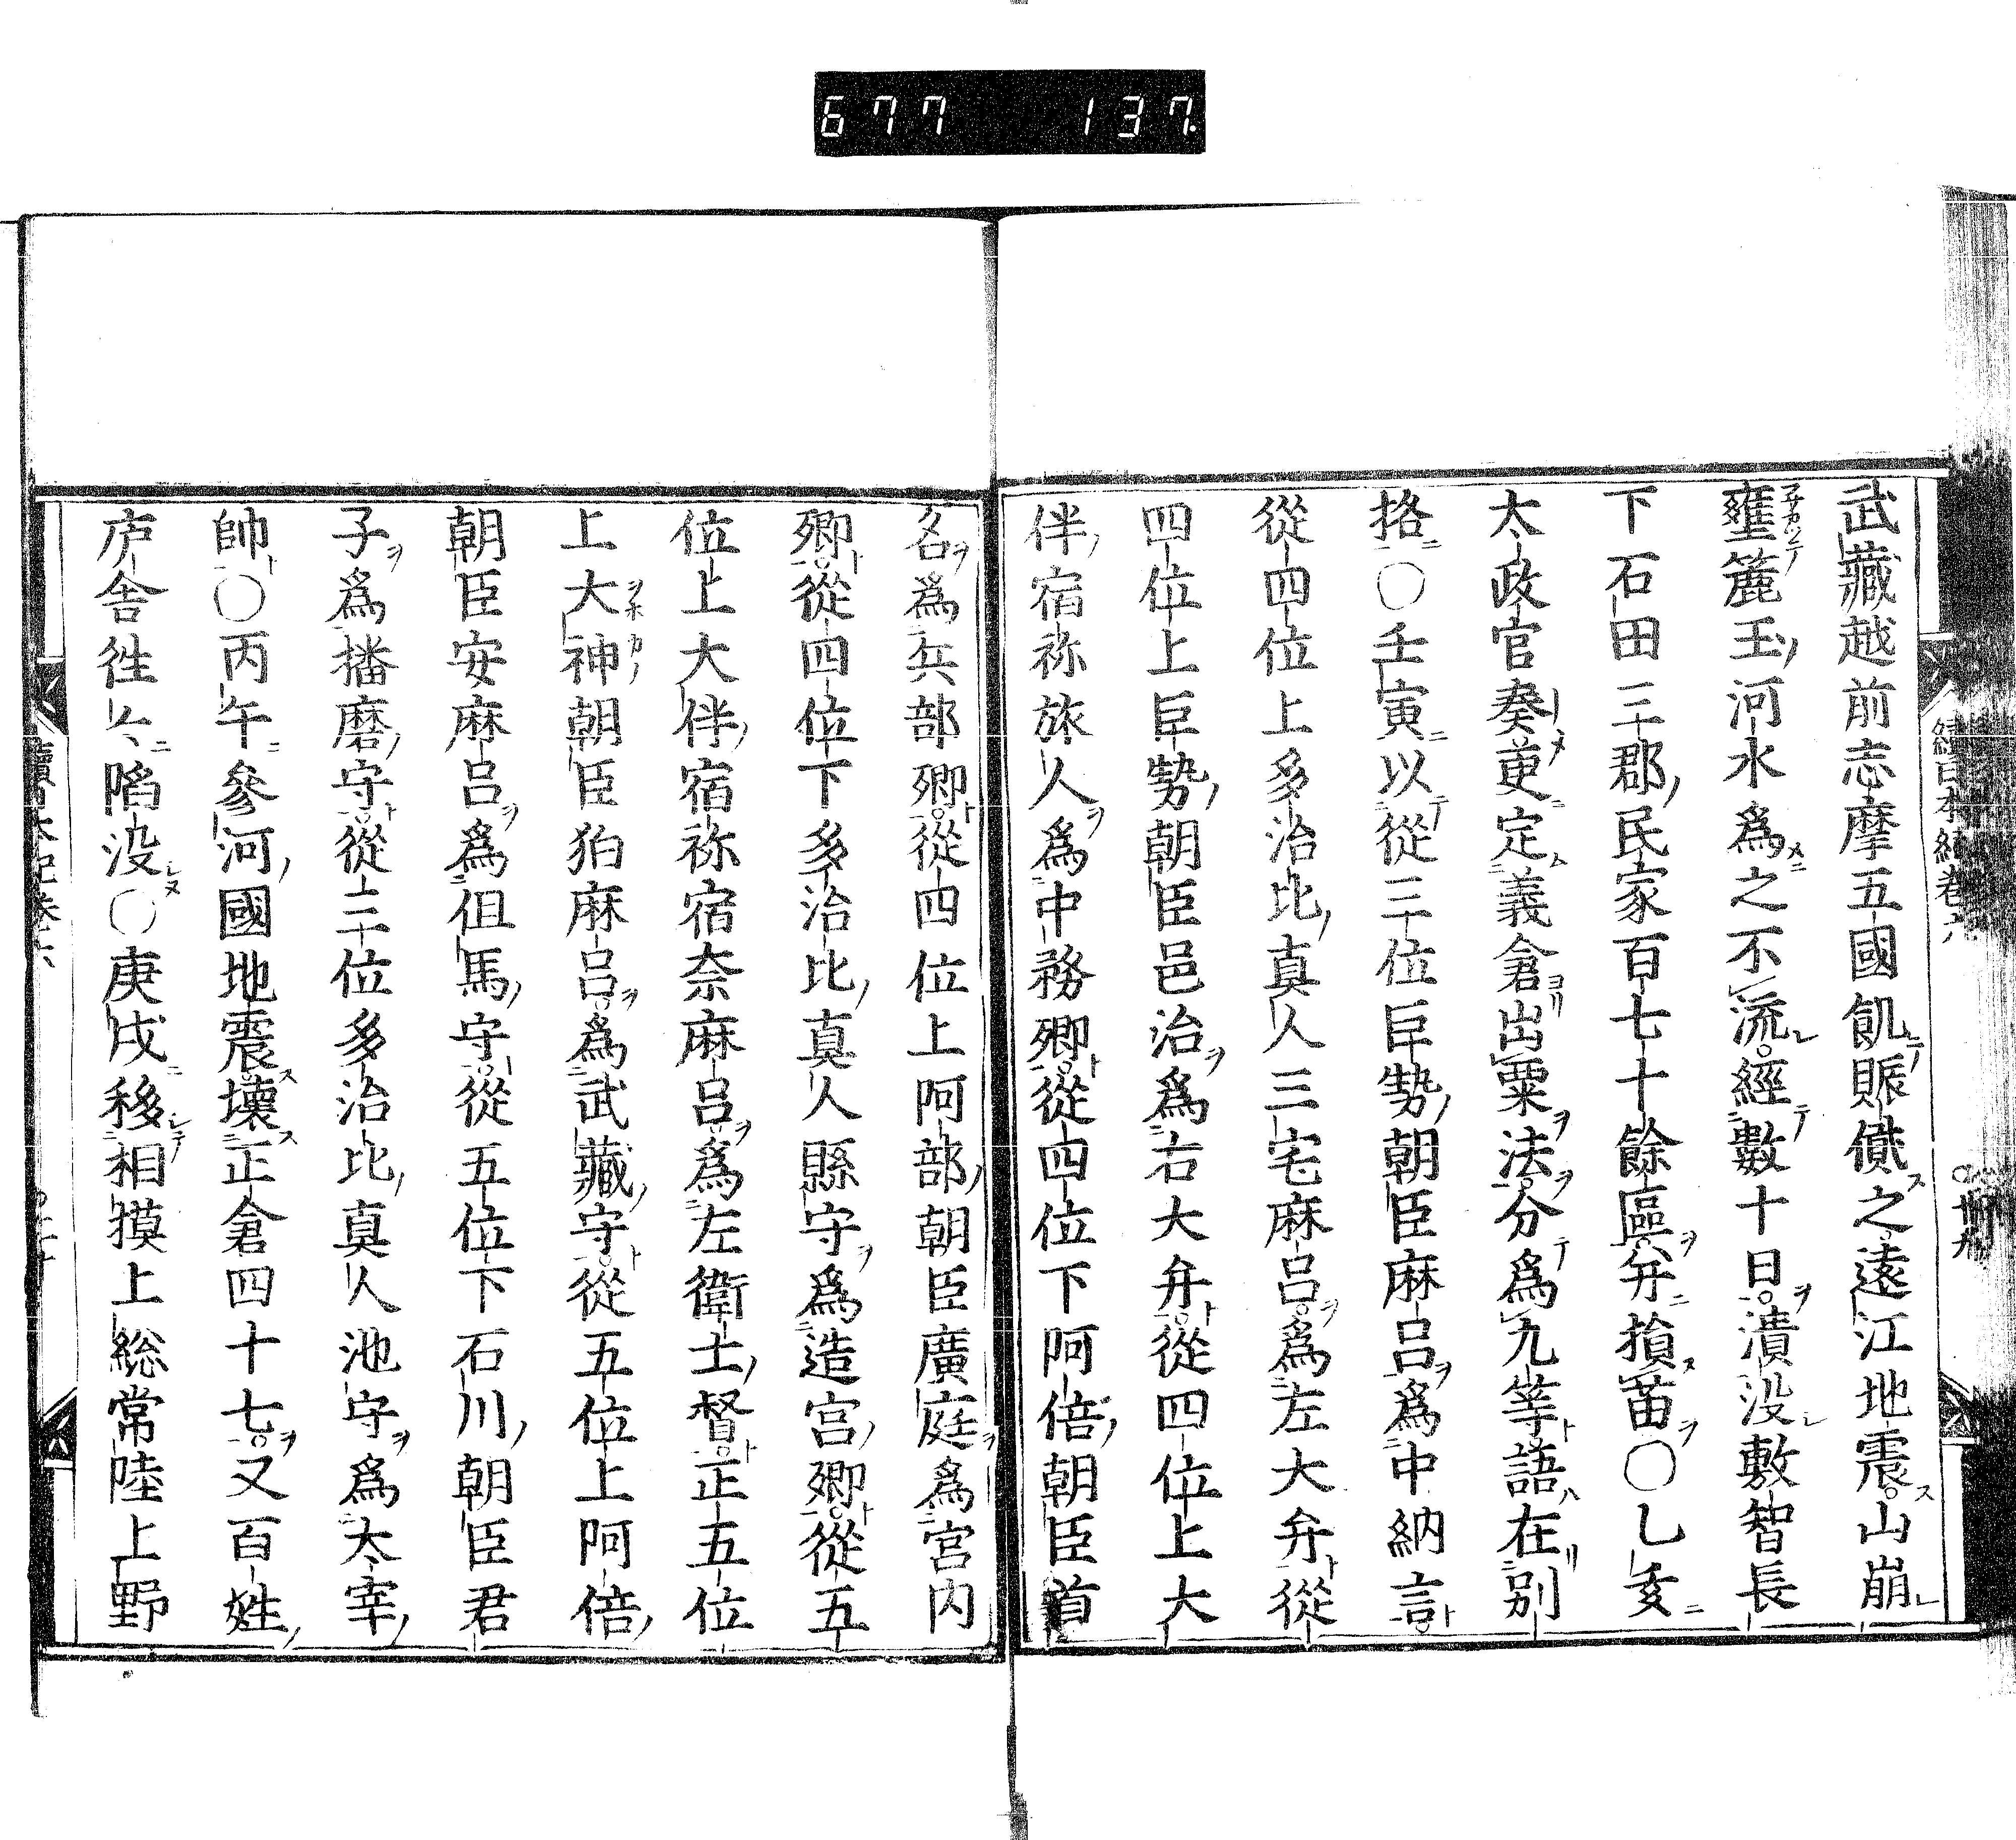 677 137.
武藏越前志摩五國飢賑貸之遠江地震山崩
壅麁玉河水爲之不流經數十日潰没敷智長
下石田三郡民家百七十餘區并損苗〇乙亥
太政官奏更定義倉出粟法分爲九等語在別
挌〇壬寅以從三位巨勢朝臣麻呂爲中納言
從四位上多治比真人三宅麻呂爲左大弁從
四位上巨勢朝臣邑治爲右大弁從四位上大
伴宿祢旅人爲中務卿從四位下阿倍朝臣首
名爲兵部卿從四位上阿部朝臣廣庭爲宮内
卿從四位下多治比真人縣守爲造宮卿從五
位上大伴宿祢宿奈麻呂爲左衛士督正五位
上大神朝臣狛麻呂爲武藏守從五位上阿倍
朝臣安麻呂爲但馬守從五位下石川朝臣君
子爲播磨守從三位多治比真人池守爲太宰
帥〇丙午參河國地震壞正倉四十七又百姓
庐舍徃々陷没〇庚戌移相摸上総常陸上野
續日本紀卷六
〇廿九